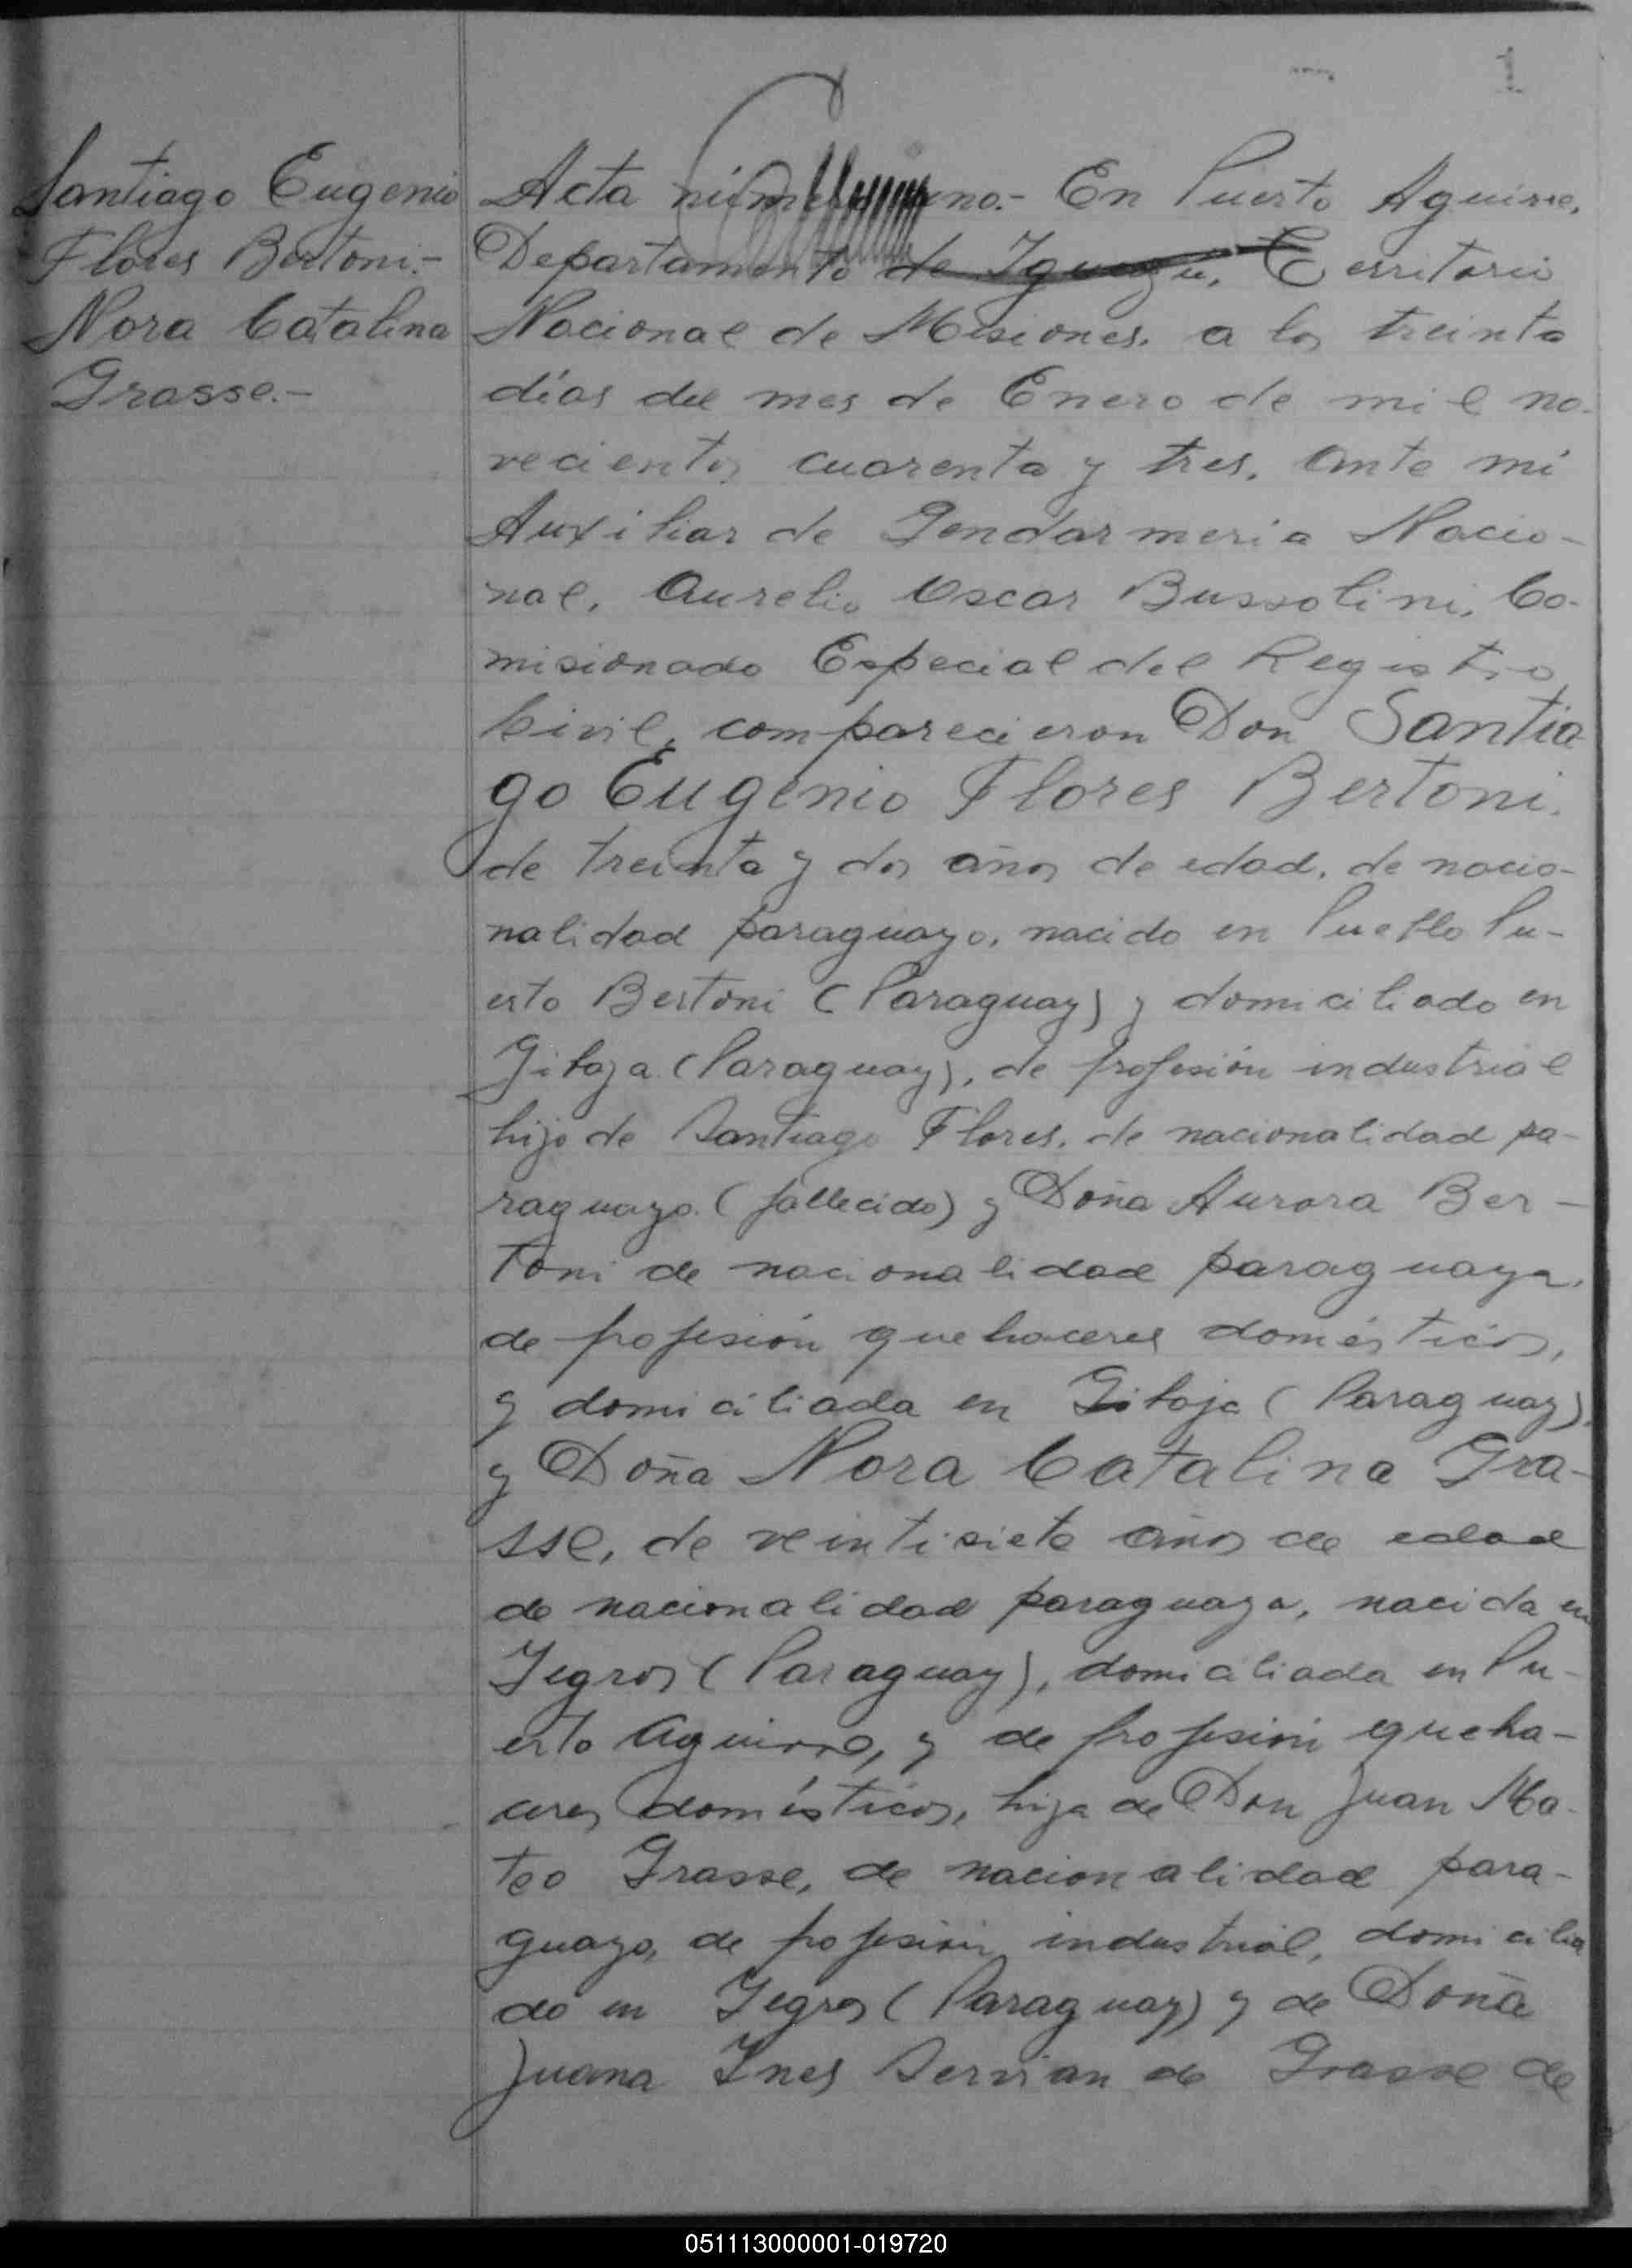 1
Santiago Eugenio
Flores Bertoni.-
Nora Catalina
Grasse.-
Acta número uno.- En Puerto Aguirre,
Departamento de Iguazú, Territorio
Nacional de Misiones, a los treinta
días del mes de Enero de mil no-
vecientos cuarenta y tres, ante mí
Auxiliar de Gendarmería Nacio-
nal, Aurelio Oscar Bussolini, Co-
misionado Especial del Registro
Civil, comparecieron Don Santia
go Eugenio Flores Bertoni,
de treinta y dos años de edad, de nacio-
nalidad paraguayo, nacido en Pueblo Pu-
erto Bertoni (Paraguay) y domiciliado en
(Paraguay), de profesión industrial
hijo de Santiago Flores, de nacionalidad pa-
raguayo (fallecido) y Doña Aurora Ber-
toni de nacionalidad paraguaya,
de profesión quehaceres domésticos,
y domiciliada en (Paraguay)
y Doña Nora Catalina Gra-
sse, de veintisiete años de edad
de nacionalidad paraguaya, nacida en
Yegros (Paraguay), domiciliada en Pu-
erto Aguirre, y de profesión queha-
ceres domésticos, hija de Don Juan Ma-
teo Grasse, de nacionalidad para-
guayo, de profesión industrial, domicilia
do en Yegros (Paraguay) y de Doña
Juana Ines Servian de Grasse de
051113000001-019720